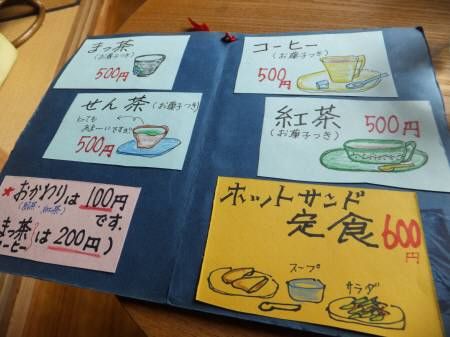 まっ茶
(お菓子つき)
500円
せん茶(お菓子つき)
とっても
あまーいですよ!!
500円
★おかわりは100円
です.
まっ茶
コーヒー
}は200円)
コーヒー
(お菓子つき)
500円
紅茶 500円
(お菓子つき)
ホットサンド
定食 600
円
スープ
サラダ